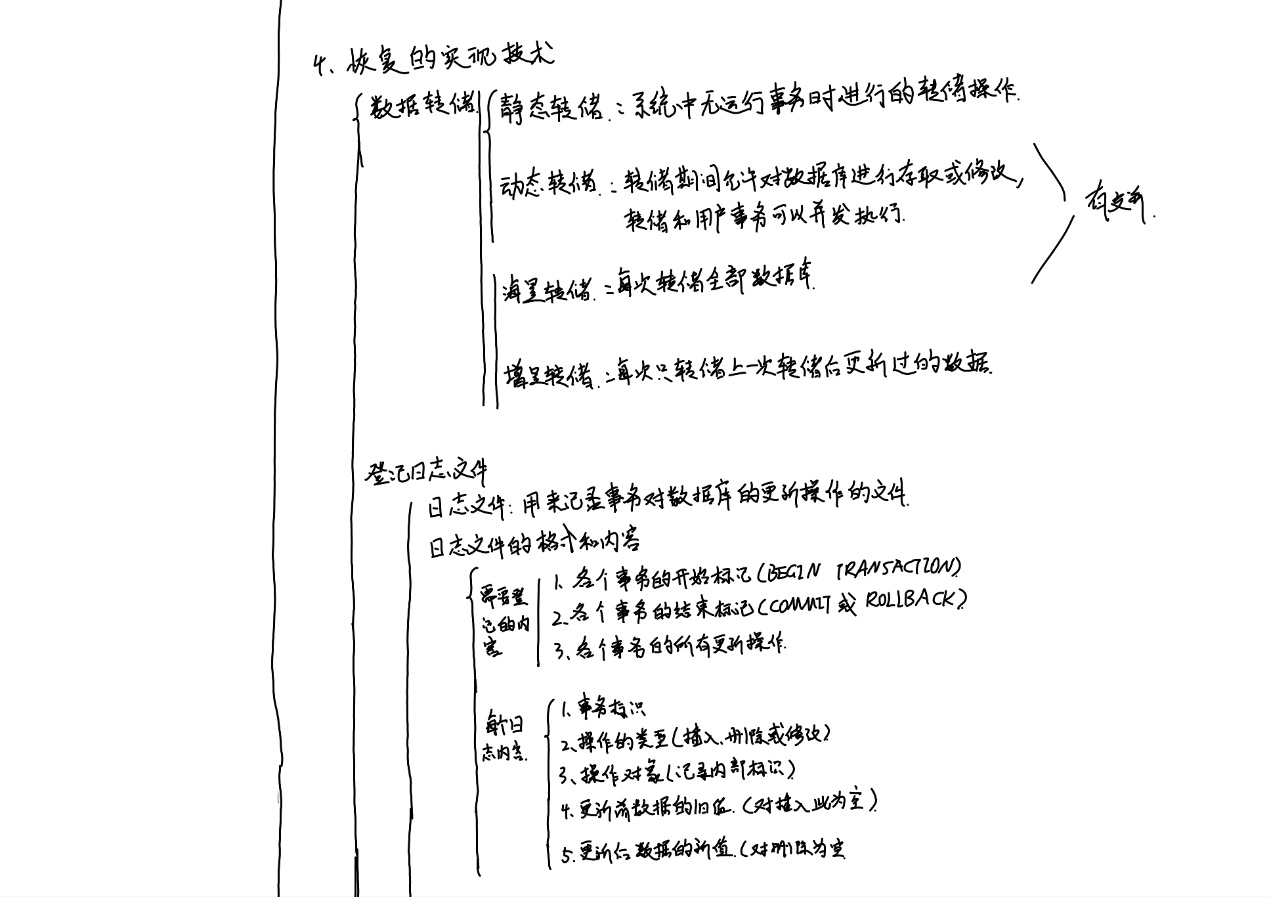 4、恢复的实现技术
数据转储
静态转储：系统中无运行事务时进行的转储操作.
动态转储：转储期间允许对数据库进行存取或修改,
转储和用户事务可以并发执行.
海量转储：每次转储全部数据库.
增量转储：每次只转储上一次转储后更新过的数据.
有
登记日志文件
日志文件：用来记录事务对数据库的更新操作的文件
日志文件的格式和内容
需要登
记的内
容
1. 各个事务的开始标记(BEGIN TRANSACTION)
2、各个事务的结束标记(COMMIT或 ROLLBACK)
3、各个事务的所有更新操作.
每个日
志内容.
1、事务标识
2、操作的类型(插入、删除或修改)
3、操作对象(记录内部标识)
4、更新前数据的旧值.(对插入此为空)
5、更新后数据的新值.(对删除为空